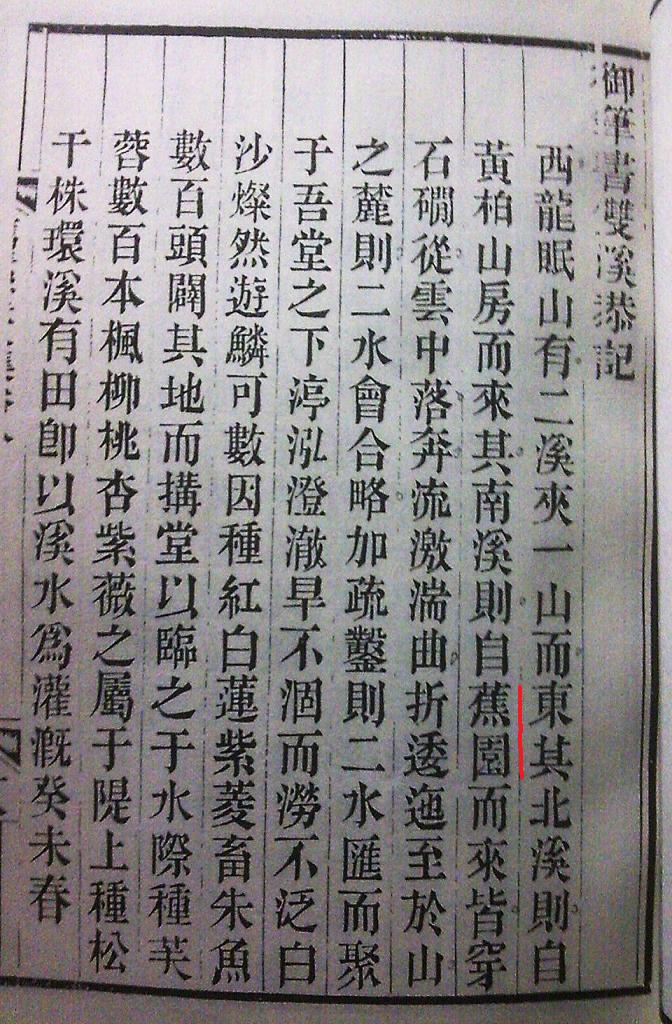 御筆書雙溪恭記
西龍眠山有二溪夾一山而東其北溪則自
黃柏山房而來其南溪則自蕉園而來皆穿
石磵從雲中落奔流激湍曲折逶迤至於山
之麓則二水會合略加疏鑿則二水匯而聚
于吾堂之下渟泓澄澈旱不涸而澇不泛白
沙燦然遊鱗可數因種紅白蓮紫菱畜朱魚
數百頭闢其地而搆堂以臨之于水際種芙
蓉數百本楓柳桃杏紫薇之屬于隄上種松
千株環溪有田卽以溪水爲灌溉癸未春